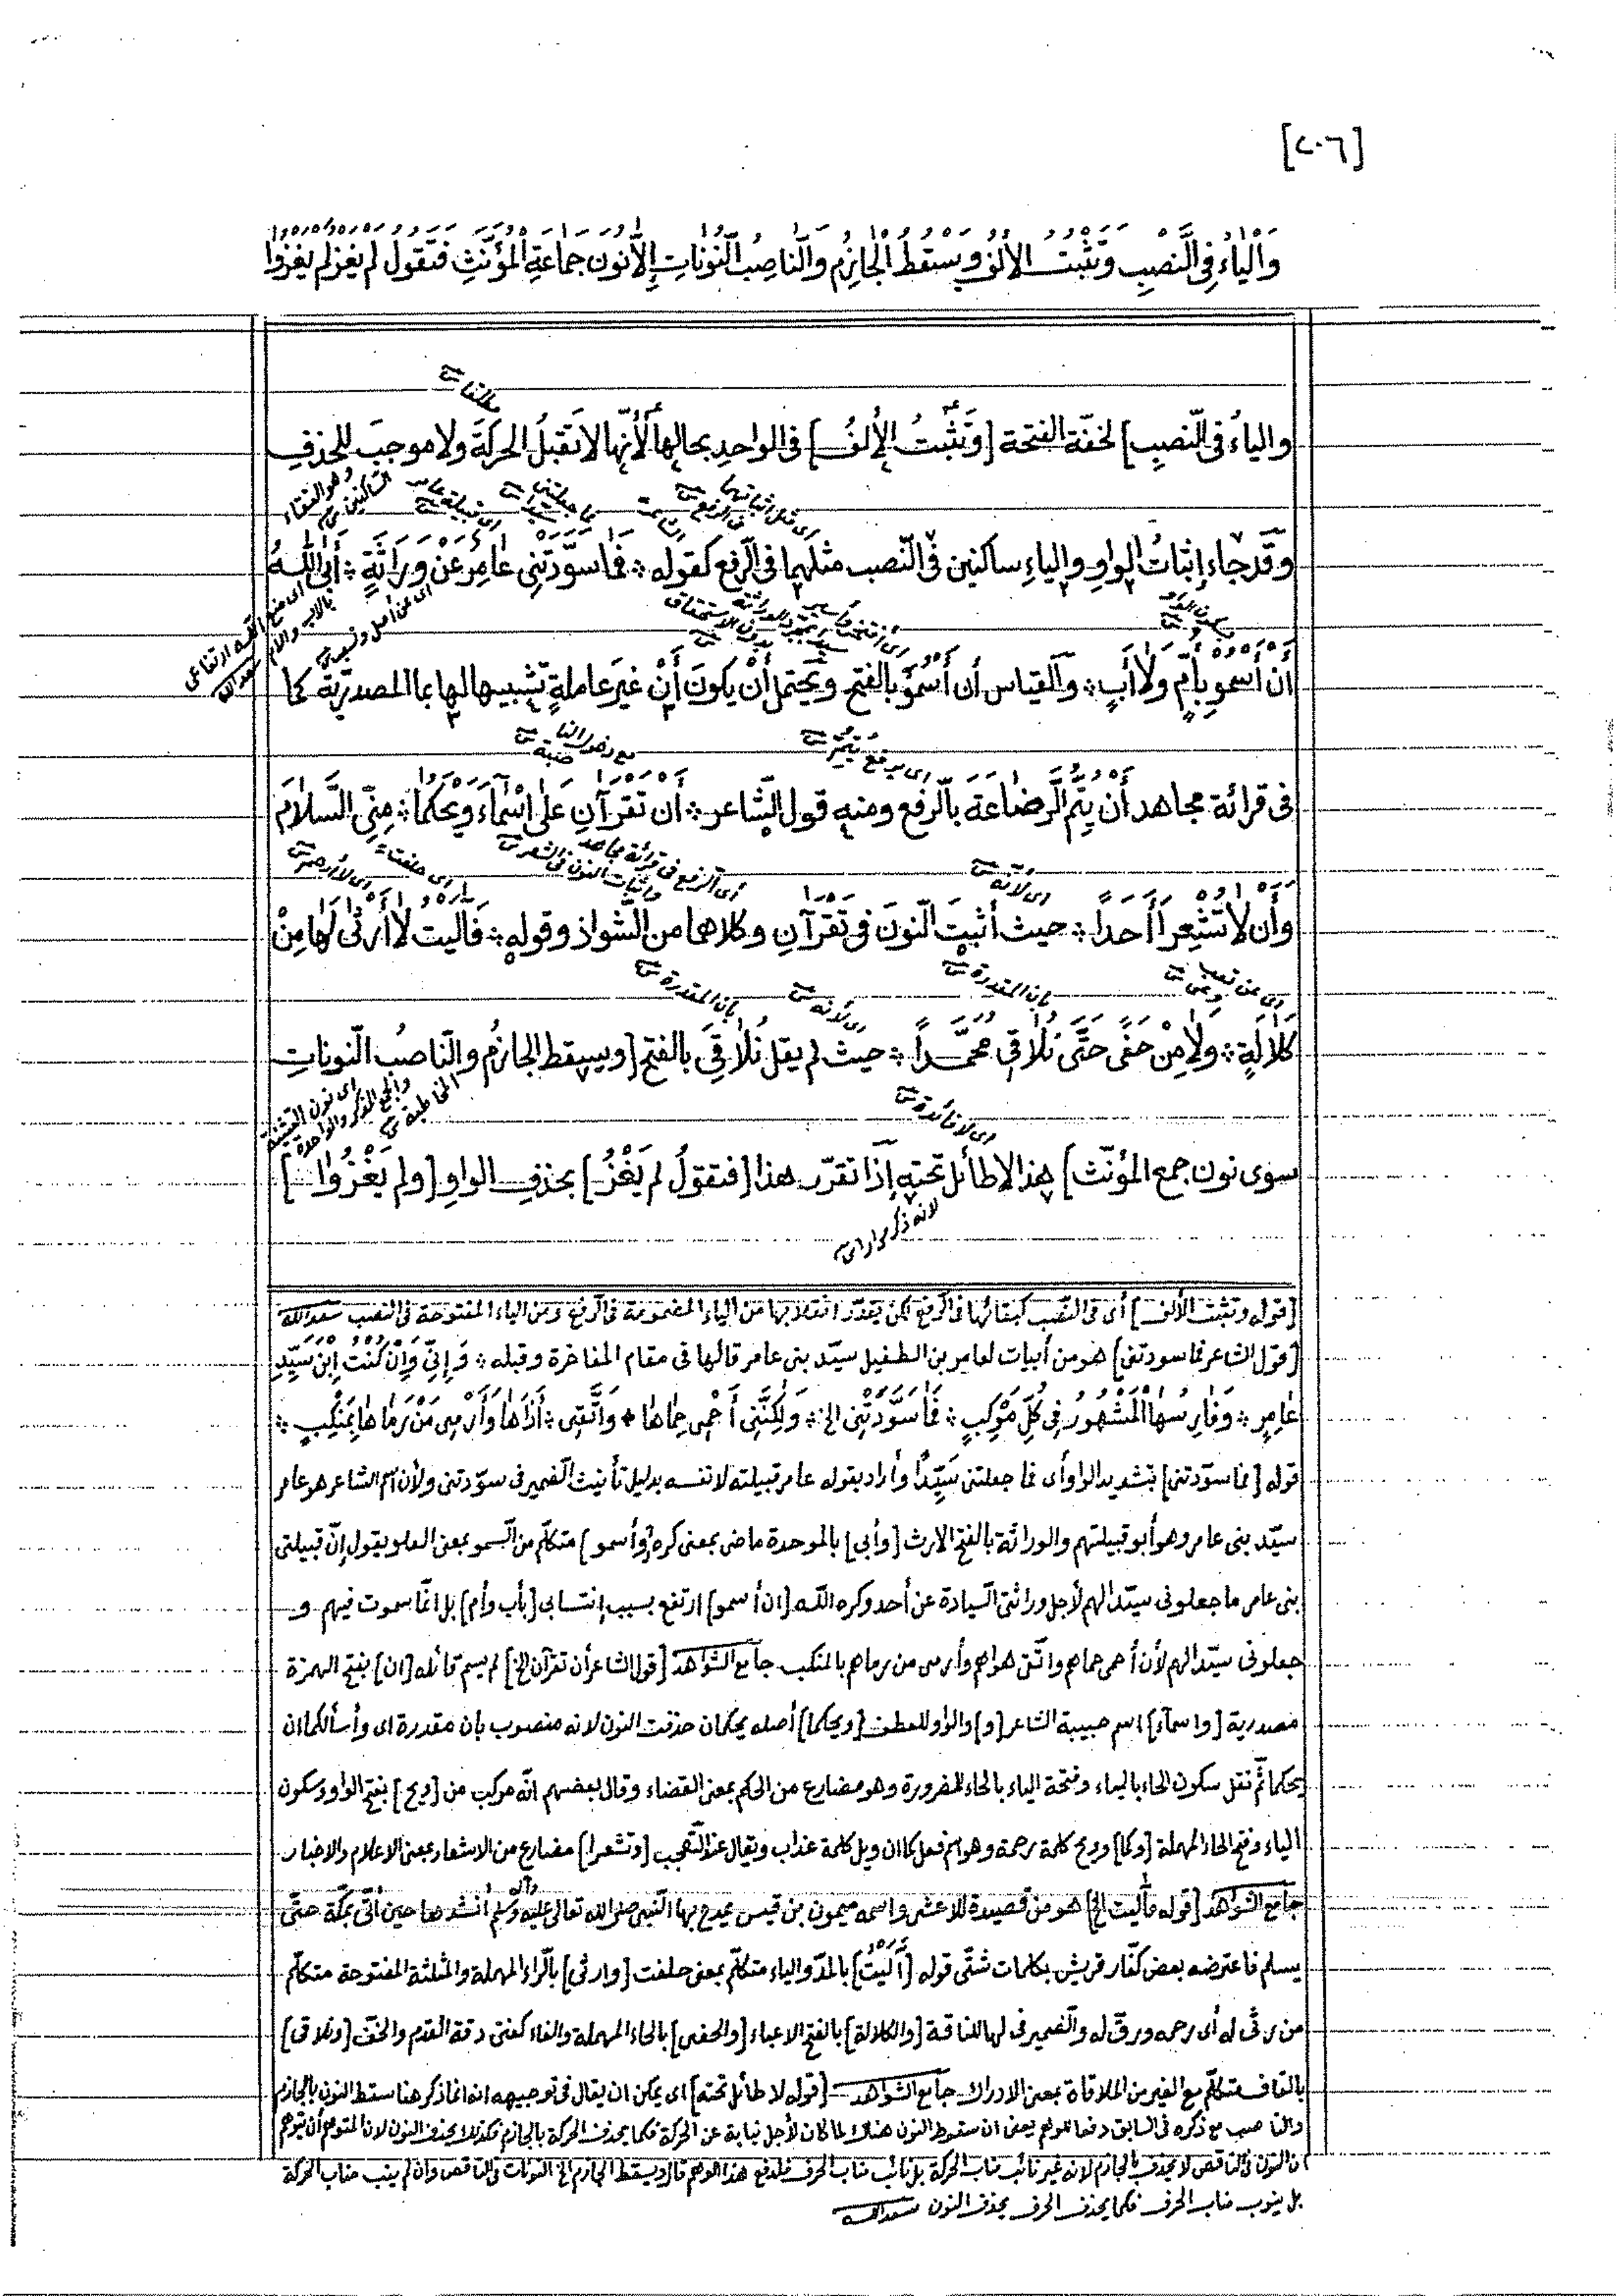 [٢٠٦]
وَالْيَاءُ فِى النَّصْبِ وَتَثْبُتُ الْأَلِفُ وَيَسْقُطُ الْجَازِمُ وَالنَّاصِبُ النُّونَاتِ إِلَّا نُونَ جَمَاعَةِ الْمُؤَنَّثِ فَتَقُولُ لَمْ يَغْزُ لَمْ يَغْزُوا
مطلقا
والياءُ فى النّصبِ] لخفّة الفتحة [وَتَثْبُتُ الأَلِفُ] فى الواحدِ بحالها لأنّها لا تقبلُ الحركةَ ولا موجبَ للحذفِ
وهو التقاء الساكنين
اى قبيلة عامر
ما جعلتنى سيدا
اى مثل اثباتهما فى الرفع
وقد جاء إثباتُ الواوِ والياءِ ساكنين فى النّصب مثلهما فى الرّفع كقوله ؞ فَمَا سَوَّدَتْنِى عَامِرٌ عَنْ وَرَاثَةٍ ؞ أَبَى اللّٰهُ
بسكون الواو
اى عن أصل ونسب
اى منع الله ارتفاعى بالاب والام سعد الله
أَنْ أَسْمُو بِأُمٍّ وَلَا أَبٍ ؞ والقياس أن أَسْمُوَ بالفتحِ ويحتمل أن يكونَ أَنْ غيرَ عاملةٍ تشبيها لها بما المصدريّة كما
مع دخول الناصبة
اى برفع يتم
فى قرائة مجاهد أن يُتِمُّ الرَّضَاعَةَ بالرّفع ومنه قول الشّاعر ؞ أَنْ تَقْرَآنِ عَلَى أَسْمَاءَ وَيْحَكُمَا ؞ مِنِّى السَّلَامَ
اى لا أرحم
اى حلفت
اى الرفع فى قرائة مجاهد واثبات النون فى الشعر
اى لانه
وَأَنْ لَا تُشْعِرَا أَحَدًا ؞ حيث أثبتَ النّونَ فى تَقْرَآنِ وكلاهما من الشّواذ وقوله ؞ فَآلَيْتُ لَا أَرْثِى لَهَا مِنْ
اى من تعب
بان المقدرة
اى لانه
بان المقدرة
كَلَالَةٍ ؞ وَلَا مِنْ حَفًى حَتَّى تُلَاقِى مُحَمَّدًا ؞ حيث لم يقل تُلَاقِىَ بالفتح [ويسقط الجازمُ والنّاصبُ النّوناتِ
اى نون التثنية والجمع المذكر والواحدة المخاطبة
اى لا فائدة
سوى نون جمع المؤنّث] هذا لا طائل تحته إذا تقرّر هذا [فتقولُ لم يَغْزُ] بحذفِ الواوِ [ولم يَغْزُوا]
لانه ذكر مرارا
[قوله وتثبت الألف] أى فى النّصب كبقائها فى الرّفع لكن يقدّر انقلابها من الياء المضمومة فى الرّفع ومن الياء المفتوحة فى النصب سعد الله
[قول الشاعر فما سودتنى] هو من أبيات لعامر بن الطفيل سيّد بنى عامر قالها فى مقام المفاخرة وقبله ؞ وَإِنِّى وَإِنْ كُنْتُ ابْنَ سَيِّدِ
عَامِرٍ ؞ وَفَارِسُهَا الْمَشْهُورُ فِى كُلِّ مَوْكِبٍ ؞ فَمَا سَوَّدَتْنِى الخ ؞ وَلٰكِنَّنِى أَحْمِى حِمَاهَا ؞ وَأَتَّقِى ؞ أَذَاهَا وَأَرْمِى مَنْ رَمَاهَا بِمَنْكِبٍ ؞
قوله [فما سوّدتنى] بتشديد الواو أى فما جعلتنى سَيِّدًا وأراد بقوله عامر قبيلته لا نفسه بدليل تأنيث الضمير فى سوّدتنى ولأن اسم الشاعر هو عامر
سيّد بنى عامر وهو أبو قبيلتهم والوراثة بالفتح الارث [وأبى] بالموحدة ماض بمعنى كره [وأسمو] متكلّم من السمو بمعنى العلو يقول إنّ قبيلتى
بنى عامر ما جعلونى سيّدا لهم لأجل وراثتى السيادة عن أحد وكره اللّٰه [ان أسمو] ارتفع بسبب انتسابى [بأب وأم] بل انّما سموت فيهم و
جعلونى سيّدا لهم لأن أحمى حماهم واتّق هواهم وأرمى من رماهم بالمنكب جامع الشواهد [قول الشاعر أن تقرآن الخ] لم يسم قائله [ان] بفتح الهمزة
مصدرية [واسمآء] اسم حبيبة الشاعر [و] والواو للعطف [ويحكما] أصله يحكمان حذفت النون لانه منصوب بان مقدرة اى وأسألكما ان
يحكما ثمّ نقل سكون الحاء بالياء وفتحة الياء بالحاء للضرورة وهو مضارع من الحكم بمعنى القضاء وقال بعضهم انّه مركب من [ويح] بفتح الواو وسكون
الياء وفتح الحاء المهملة [وكما] وويح كلمة رحمة وهو اسم فعل كما ان ويل كلمة عذاب ويقال عند التّعجب [وتشعرا] مضارع من الاشعار بمعنى الاعلام والاخبار
جامع الشواهد [قوله فآليت الخ] هو من قصيدة للاعشى واسمه ميمون بن قيس يمدح بها النّبى صلى الله تعالى عليه وآله وسلّم أنشدها حين أتى بمكّة حتّى
يسلم فاعترضه بعض كفّار قريش بكلمات شتّى قوله [آلَيْتُ] بالمدّ والياء متكلّم بمعنى حلفت [وارثى] بالرّاء المهملة والمثلثة المفتوحة متكلّم
من رثى له أى رحمه ورقّ له والضمير فى لها للناقة [والكلالة] بالفتح الاعياء [والحفى] بالحاء المهملة والفاء كفتى دقة القدم والخفّ [وتلاقى]
بالقاف متكلّم مع الغير من الملاقاة بمعنى الادراك جامع الشواهد [قوله لا طائل تحته] اى يمكن ان يقال فى توجيهه انه انما ذكر هنا سقط النون بالجازم
والناصب مع ذكره فى السابق دفعا لتوهم يعنى ان سقوط النون هناك لما كان لأجل نيابة عن الحركة فكما يحذف الحركة بالجازم فكذلك يحذف النون لان المتوهم أن يتوهم
ان النون فى الناقص لا يحذف بالجازم لانه غير نائب مناب الحركة بل نائب مناب الحرف فلدفع هذا الوهم قال ويسقط الجازم الخ النونات فى الناقص وان لم ينب مناب الحركة
بل ينوب مناب الحرف فكما يحذف الحرف يحذف النون سعد الله